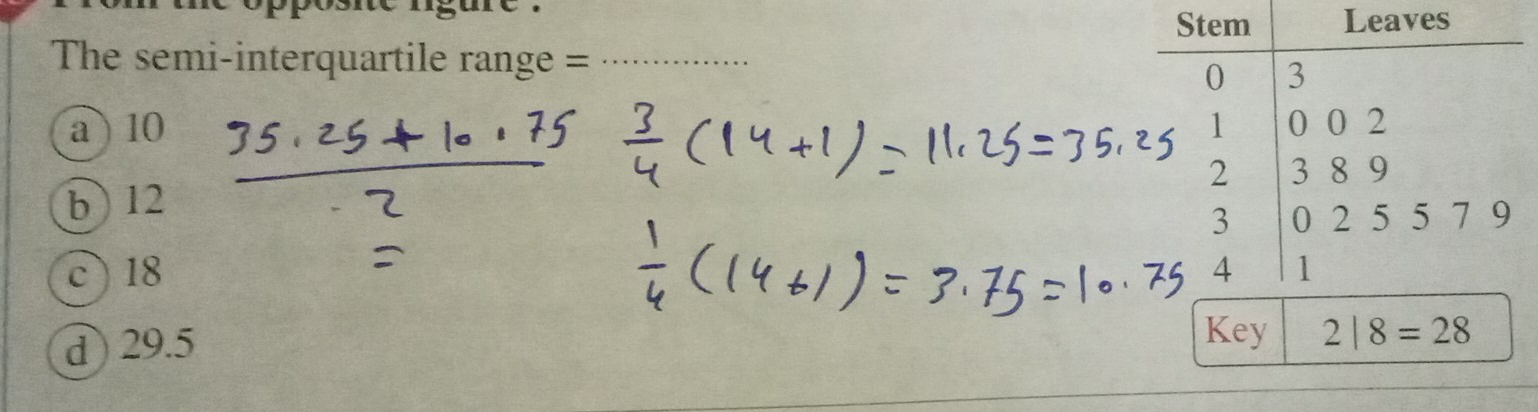 From the opposite figure :
The semi-interquartile range = ...............
a 10
b 12
c 18
d 29.5
35.25 + 10.75
2
=
3/4 (14+1) = 11.25 = 35.25
1/4 (14+1) = 3.75 = 10.75
Stem Leaves
0 3
1 0 0 2
2 3 8 9
3 0 2 5 5 7 9
4 1
Key 2 | 8 = 28